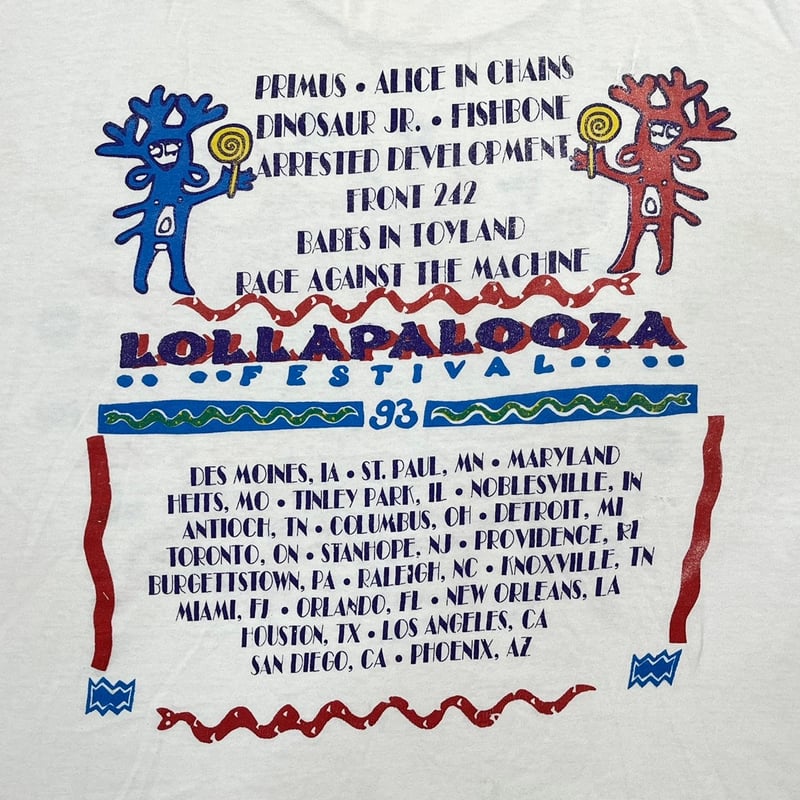 PRIMUS • ALICE IN CHAINS
DINOSAUR JR. • FISHBONE
ARRESTED DEVELOPMENT
FRONT 242
BABES IN TOYLAND
RAGE AGAINST THE MACHINE
LOLLAPALOOZA
FESTIVAL
93
DES MOINES, IA • ST. PAUL, MN • MARYLAND
HEITS, MO • TINLEY PARK, IL • NOBLESVILLE, IN
ANTIOCH, TN • COLUMBUS, OH • DETROIT, MI
TORONTO, ON • STANHOPE, NJ • PROVIDENCE, RI
BURGETTSTOWN, PA • RALEIGH, NC • KNOXVILLE, TN
MIAMI, FJ • ORLANDO, FL • NEW ORLEANS, LA
HOUSTON, TX • LOS ANGELES, CA
SAN DIEGO, CA • PHOENIX, AZ